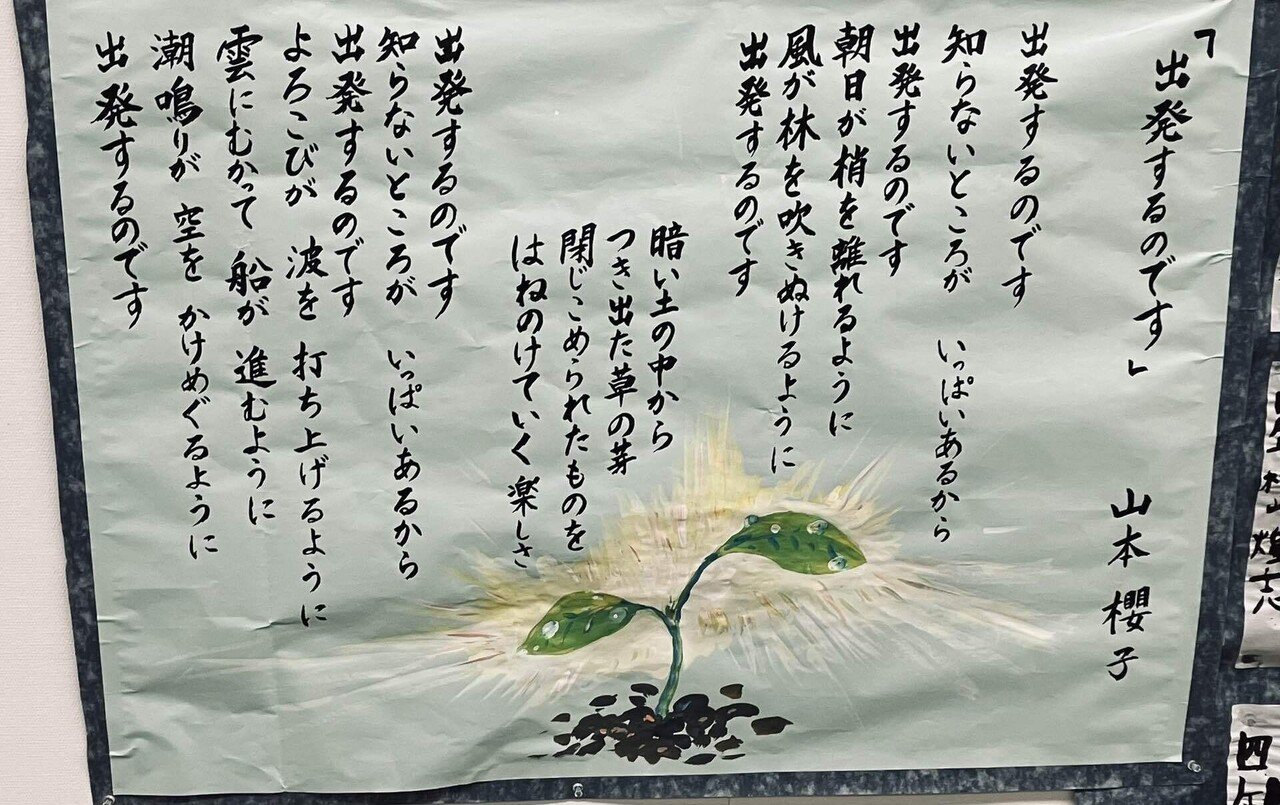 「出発するのです」
山本 櫻子
出発するのです
知らないところが いっぱいあるから
出発するのです
朝日が梢を離れるように
風が林を吹きぬけるように
出発するのです
暗い土の中から
つき出た草の芽
閉じこめられたものを
はねのけていく楽しさ
出発するのです
知らないところが いっぱいあるから
出発するのです
よろこびが 波を 打ち上げるように
雲にむかって 船が 進むように
潮鳴りが 空を かけめぐるように
出発するのです